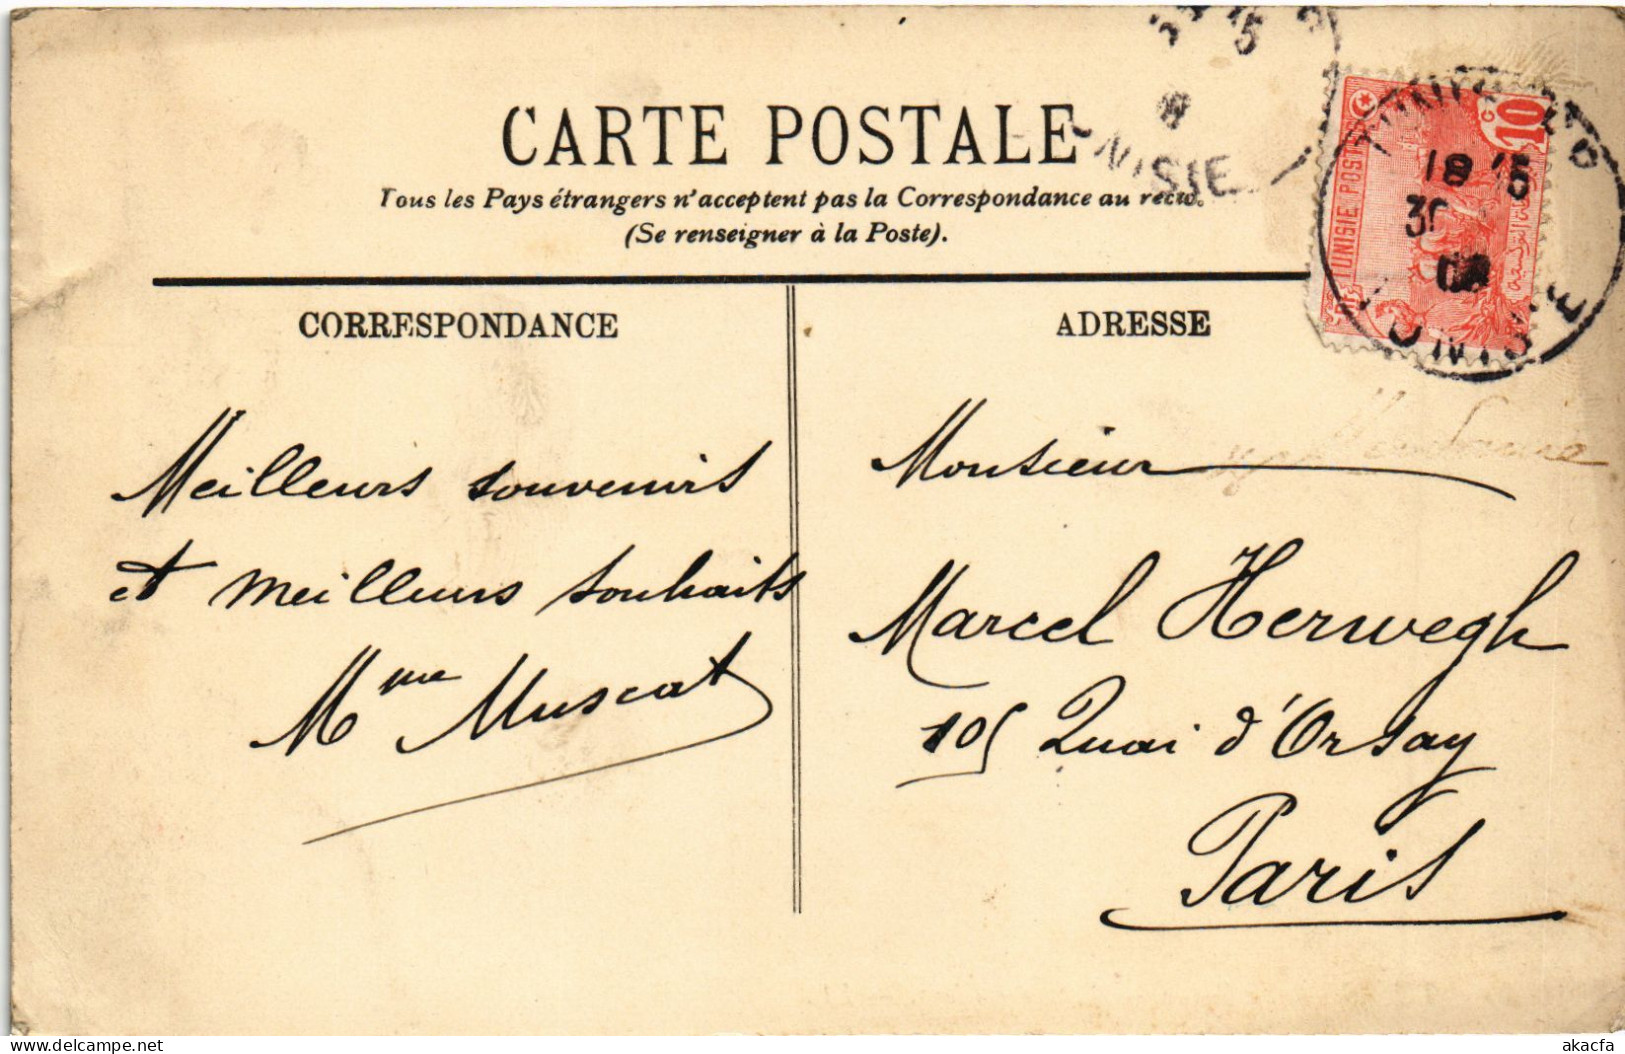 CARTE POSTALE
Tous les Pays étrangers n'acceptent pas la Correspondance au recto.
(Se renseigner à la Poste).
CORRESPONDANCE
ADRESSE
TUNISIE POSTES
10 C
18 15
30
08
Meilleurs souvenirs
et meilleurs souhaits
Mme Muscat
Monsieur
Marcel Herwegh
105 Quai d'Orsay
Paris
akacfa